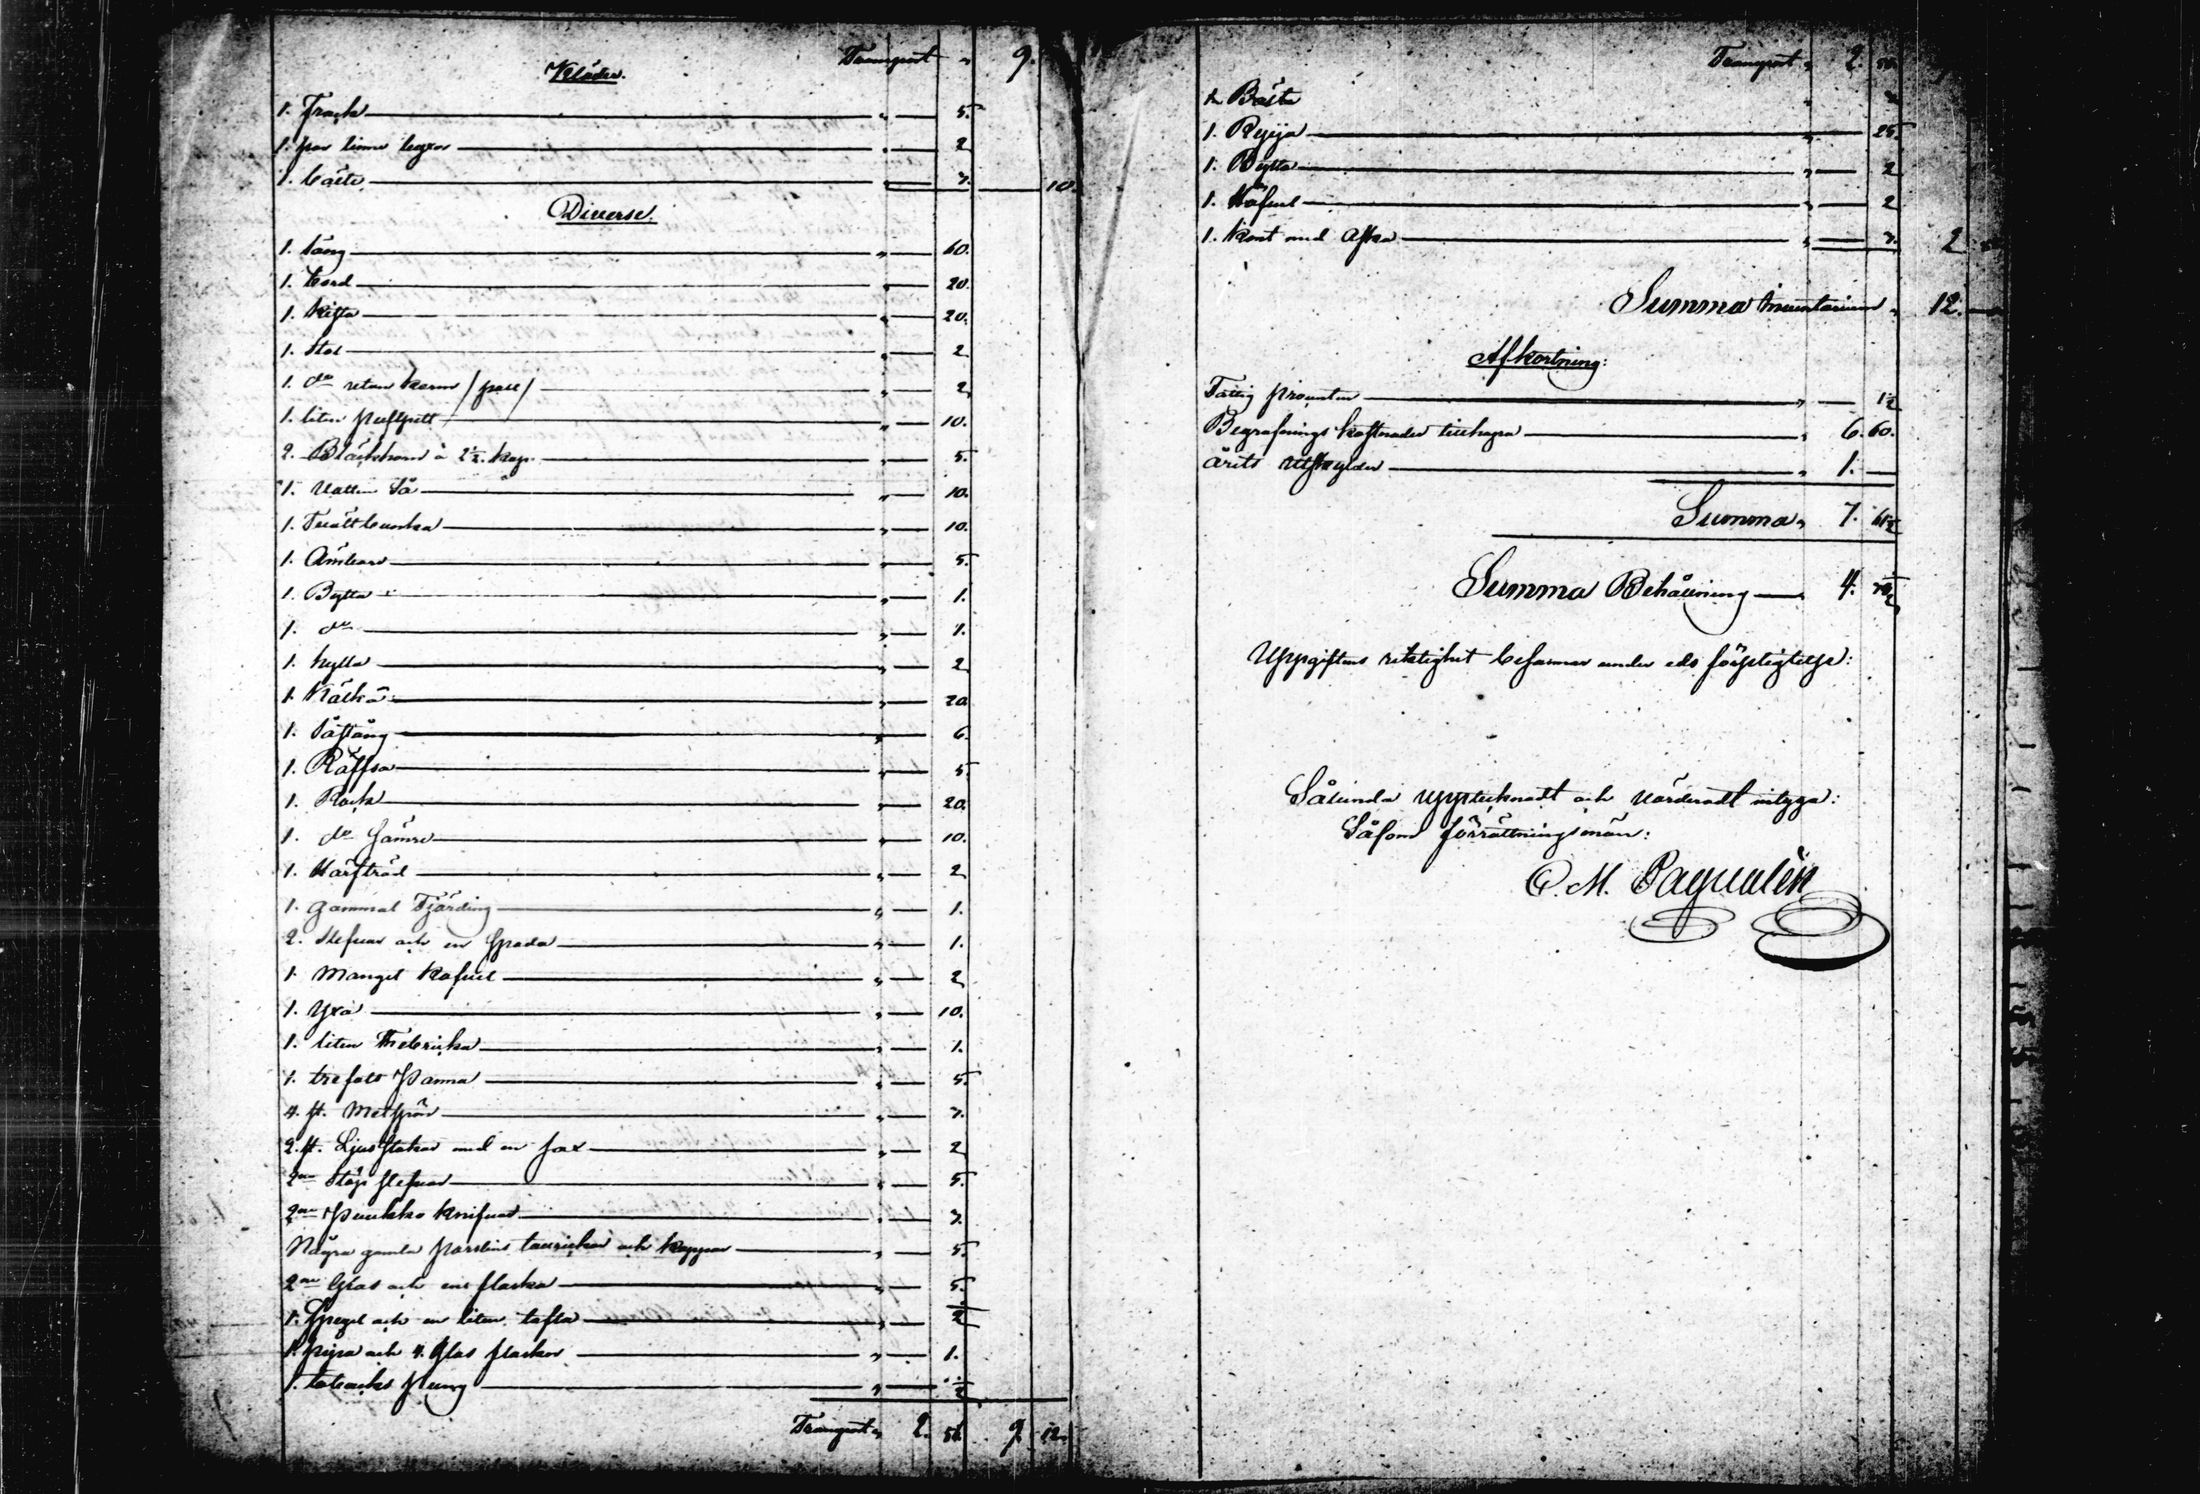 Transport " 9.
Kläder.
1. Frack " 5.
1. par linne byxor " 2
1. Bälte " 3. 10.
Diverse.
1. Säng " 60.
1. Bord " 20.
1. Kista " 20.
1. Stol " 2
1. do utan karm /pall/ " 2
1. liten pulpett " 10.
2. Bläckhorn à 2½ kop. " 5.
1. Vatten Så " 10.
1. Tvättbunka " 10.
1. Ämbare " 5.
1. Bytta " 1.
1. do " 1.
1. hylla " 2
1. Kälka " 20
1. Såstång " 6.
1. Räffsa " 5.
1. Rock " 20.
1. do sämre " 10.
1. Härfträd " 2
1. gammal Fjärding " 1.
2. Slefvar och en Spada " 1.
1. Mangel Kafvel " 2
1. Yxa " 10.
1. liten Thebricka " 1.
1. trefots Panna " 5.
4. st. Metspön " 3.
2. st. Ljusstakar med en sax " 2
2ne Slefvar " 5.
2ne Puukko Knifvar " 3.
Några gamla porslins tallrickar och koppar " 5.
2ne Glas och en flaska " 5.
1. Spegel och en liten tafla " 2
1. pipa och 4. Glas flaskor " 1.
1. tobacks pung " ½
Transport " 2. 56. 9. 12.
Transport " 2. 56.
1. Ryija " 25.
1. Bytta " 2
1. Häfvel " 2
1. Kont med Aska " 3. 2
Summa Inventarium " 12.
Afkortning:
Fattig procenten " 1½
Begrafnings kostnader tillhopa " 6. 60.
Årets utskylder " 1.
Summa " 7. 61½
Summa Behållning 4.
Uppgiftens riktighet besannar under eds förpligtelse:
Sålunda upptecknadt och värderadt intyga:
Såsom förrättningsmän:
C. M. Pagualén